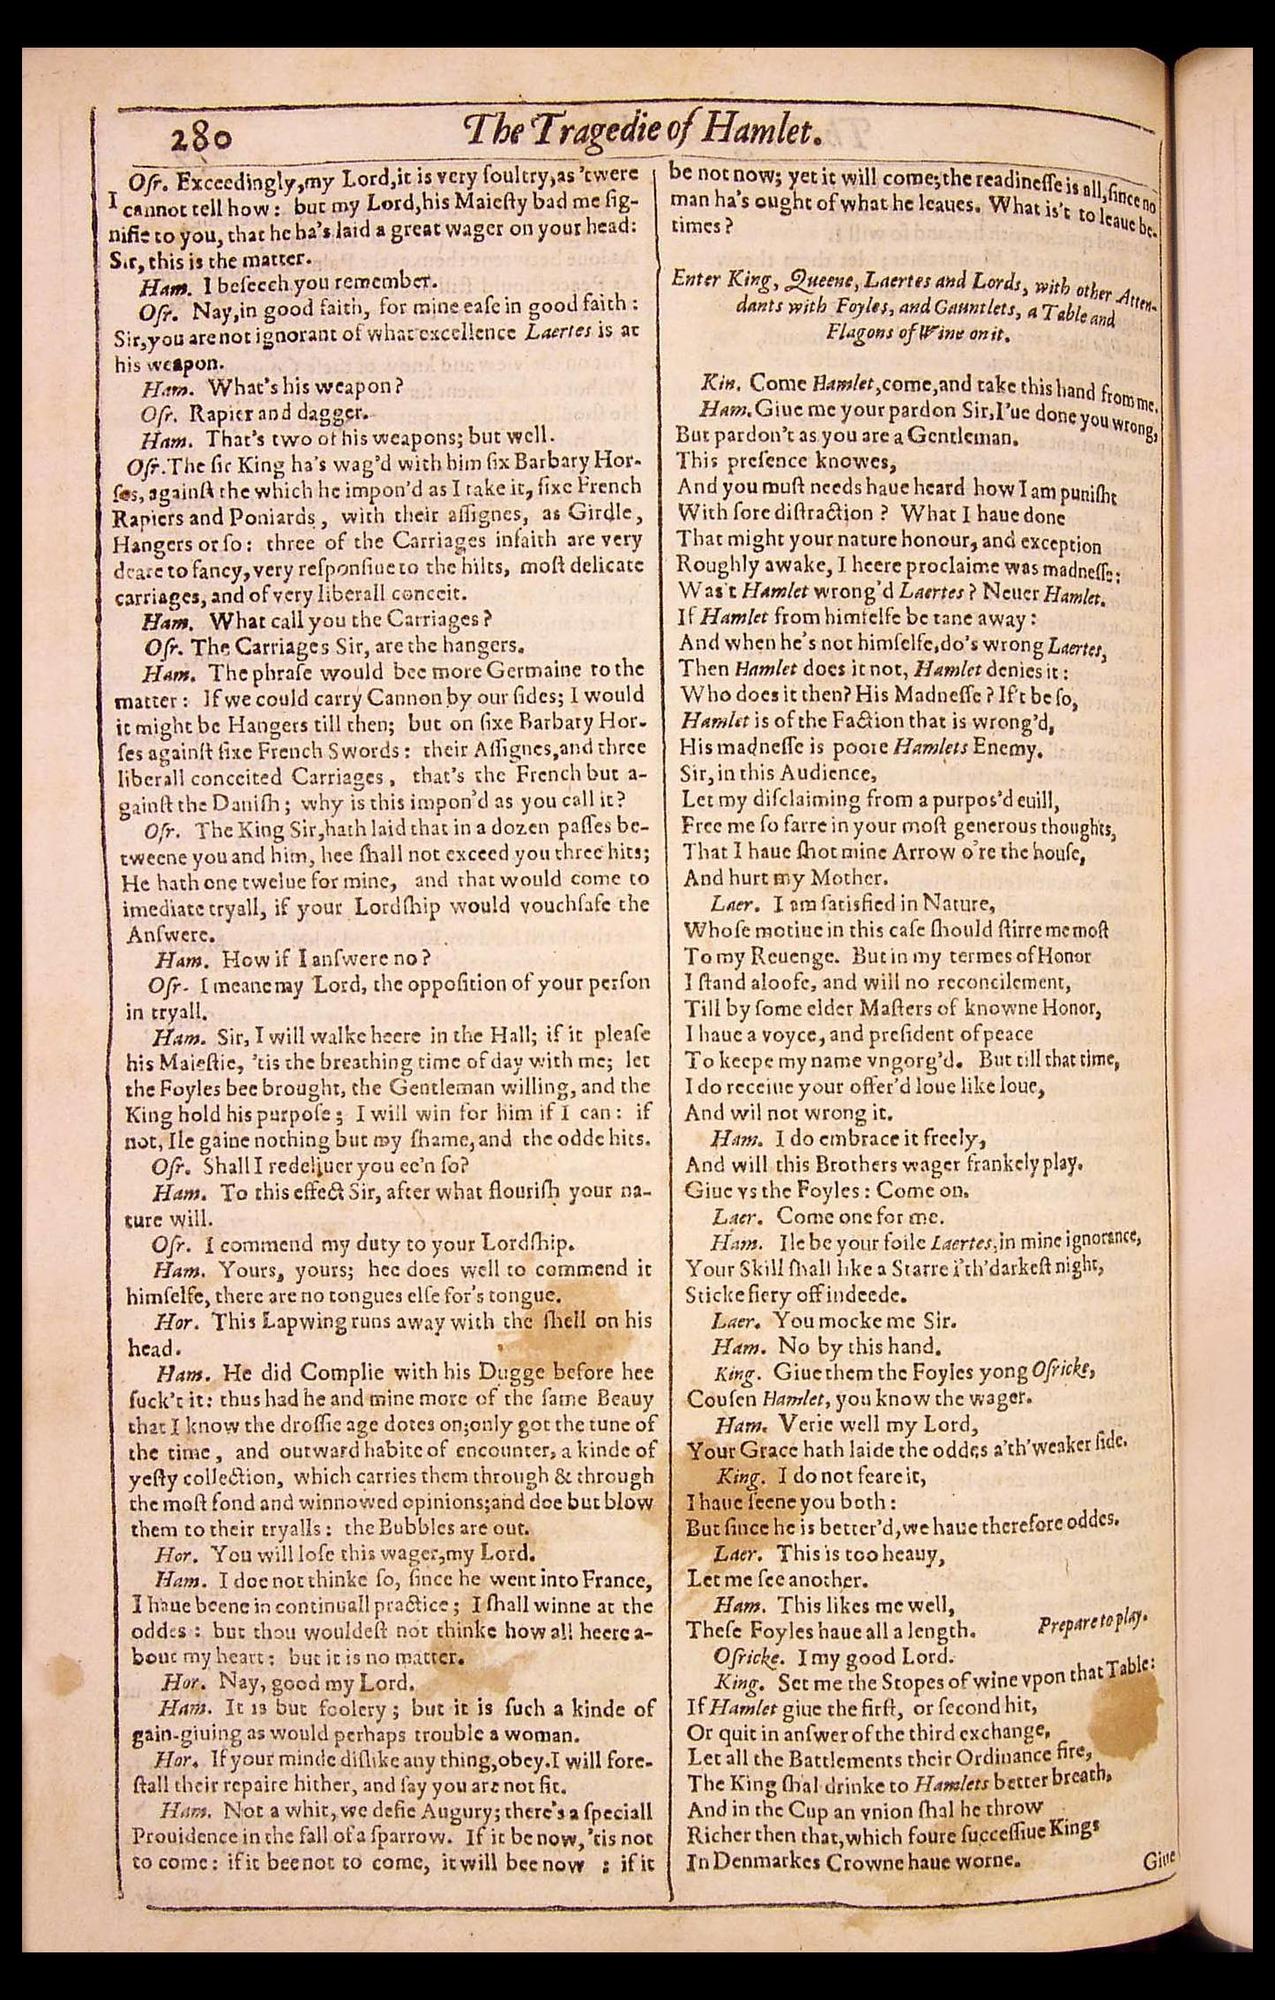 280
The Tragedie of Hamlet.
Oſr. Exceedingly,my Lord,it is very ſoultry,as 'twere
I cannot tell how: but my Lord,his Maieſty bad me ſig-
nifie to you, that he ha's laid a great wager on your head:
Sir, this is the matter.
Ham. I beſeech you remember.
Oſr. Nay,in good faith, for mine eaſe in good faith:
Sir,you are not ignorant of what excellence Laertes is at
his weapon.
Ham. What's his weapon?
Oſr. Rapier and dagger.
Ham. That's two of his weapons; but well.
Oſr. The ſir King ha's wag'd with him ſix Barbary Hor-
ſes, againſt the which he impon'd as I take it, ſixe French
Rapiers and Poniards, with their aſſignes, as Girdle,
Hangers or ſo: three of the Carriages infaith are very
deare to fancy, very reſponſiue to the hilts, moſt delicate
carriages, and of very liberall conceit.
Ham. What call you the Carriages?
Oſr. The Carriages Sir, are the hangers.
Ham. The phraſe would bee more Germaine to the
matter: If we could carry Cannon by our ſides; I would
it might be Hangers till then; but on ſixe Barbary Hor-
ſes againſt ſixe French Swords: their Aſſignes,and three
liberall conceited Carriages, that's the French but a-
gainſt the Daniſh; why is this impon'd as you call it?
Oſr. The King Sir,hath laid that in a dozen paſſes be-
tweene you and him, hee ſhall not exceed you three hits;
He hath one twelue for mine, and that would come to
imediate tryall, if your Lordſhip would vouchſafe the
Anſwere.
Ham. How if I anſwere no?
Oſr. I meane my Lord, the oppoſition of your perſon
in tryall.
Ham. Sir, I will walke heere in the Hall; if it pleaſe
his Maieſtie, 'tis the breathing time of day with me; let
the Foyles bee brought, the Gentleman willing, and the
King hold his purpoſe; I will win for him if I can: if
not, Ile gaine nothing but my ſhame,and the odde hits.
Oſr. Shall I redeliuer you ee'n ſo?
Ham. To this effect Sir, after what flouriſh your na-
ture will.
Oſr. I commend my duty to your Lordſhip.
Ham. Yours, yours; hee does well to commend it
himſelfe, there are no tongues elſe for's tongue.
Hor. This Lapwing runs away with the ſhell on his
head.
Ham. He did Complie with his Dugge before hee
ſuck't it: thus had he and mine more of the ſame Beauy
that I know the droſſie age dotes on;only got the tune of
the time, and outward habite of encounter, a kinde of
yeſty collection, which carries them through & through
the moſt fond and winnowed opinions;and doe but blow
them to their tryalls: the Bubbles are out.
Hor. You will loſe this wager,my Lord.
Ham. I doe not thinke ſo, ſince he went into France,
I haue beene in continuall practice; I ſhall winne at the
oddes: but thou wouldeſt not thinke how all heere a-
bout my heart: but it is no matter.
Hor. Nay, good my Lord.
Ham. It is but foolery; but it is ſuch a kinde of
gain-giuing as would perhaps trouble a woman.
Hor. If your minde diſlike any thing,obey.I will fore-
ſtall their repaire hither, and ſay you are not fit.
Ham. Not a whit, we defie Augury; there's a ſpeciall
Prouidence in the fall of a ſparrow. If it be now, 'tis not
to come: if it bee not to come, it will bee now ; if it
be not now; yet it will come;the readineſſe is all,ſince no
man ha's ought of what he leaues. What is't to leaue be-
times?
Enter King, Queene, Laertes and Lords, with other Atten-
dants with Foyles, and Gauntlets, a Table and
Flagons of Wine on it.
Kin. Come Hamlet,come,and take this hand from me.
Ham. Giue me your pardon Sir,I'ue done you wrong,
But pardon't as you are a Gentleman.
This preſence knowes,
And you muſt needs haue heard how I am puniſht
With ſore diſtraction? What I haue done
That might your nature honour, and exception
Roughly awake, I heere proclaime was madneſſe:
Was't Hamlet wrong'd Laertes? Neuer Hamlet.
If Hamlet from himſelfe be tane away:
And when he's not himſelfe,do's wrong Laertes,
Then Hamlet does it not, Hamlet denies it:
Who does it then? His Madneſſe? If't be ſo,
Hamlet is of the Faction that is wrong'd,
His madneſſe is poore Hamlets Enemy.
Sir, in this Audience,
Let my diſclaiming from a purpos'd euill,
Free me ſo farre in your moſt generous thoughts,
That I haue ſhot mine Arrow o're the houſe,
And hurt my Mother.
Laer. I am ſatisfied in Nature,
Whoſe motiue in this caſe ſhould ſtirre me moſt
To my Reuenge. But in my termes of Honor
I ſtand aloofe, and will no reconcilement,
Till by ſome elder Maſters of knowne Honor,
I haue a voyce, and preſident of peace
To keepe my name vngorg'd. But till that time,
I do receiue your offer'd loue like loue,
And wil not wrong it.
Ham. I do embrace it freely,
And will this Brothers wager frankely play.
Giue vs the Foyles: Come on.
Laer. Come one for me.
Ham. Ile be your foile Laertes,in mine ignorance,
Your Skill ſhall like a Starre i'th'darkeſt night,
Sticke fiery off indeede.
Laer. You mocke me Sir.
Ham. No by this hand.
King. Giue them the Foyles yong Oſricke,
Couſen Hamlet, you know the wager.
Ham. Verie well my Lord,
Your Grace hath laide the oddes a'th'weaker ſide.
King. I do not feare it,
I haue ſeene you both:
But ſince he is better'd,we haue therefore oddes.
Laer. This is too heauy,
Let me ſee another.
Ham. This likes me well,
Theſe Foyles haue all a length. Prepare to play.
Oſricke. I my good Lord.
King. Set me the Stopes of wine vpon that Table:
If Hamlet giue the firſt, or ſecond hit,
Or quit in anſwer of the third exchange,
Let all the Battlements their Ordinance fire,
The King ſhal drinke to Hamlets better breath,
And in the Cup an vnion ſhal he throw
Richer then that,which foure ſucceſſiue Kings
In Denmarkes Crowne haue worne.
Giue